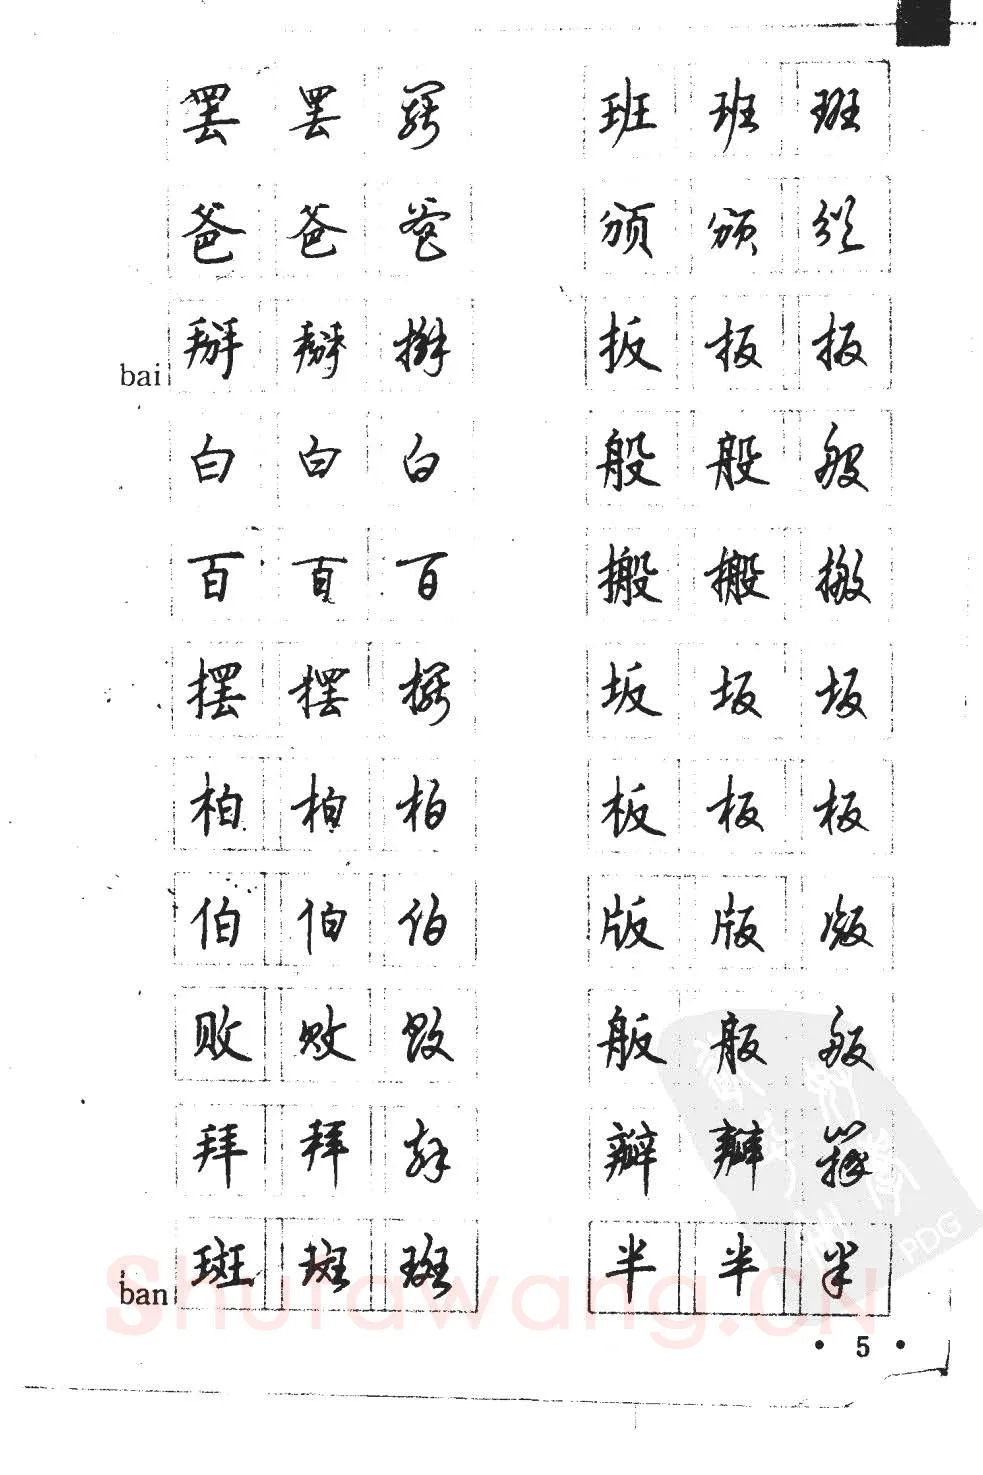 罢 罢 罢
爸 爸 爸
bai 掰 掰 掰
白 白 白
百 百 百
摆 摆 摆
柏 柏 柏
伯 伯 伯
败 败 败
拜 拜 拜
ban 斑 斑 斑
班 班 班
颁 颁 颁
扳 扳 扳
般 般 般
搬 搬 搬
坂 坂 坂
板 板 板
版 版 版
舨 舨 舨
瓣 瓣 瓣
半 半 半
Shufawang.CN
PDG
• 5 •